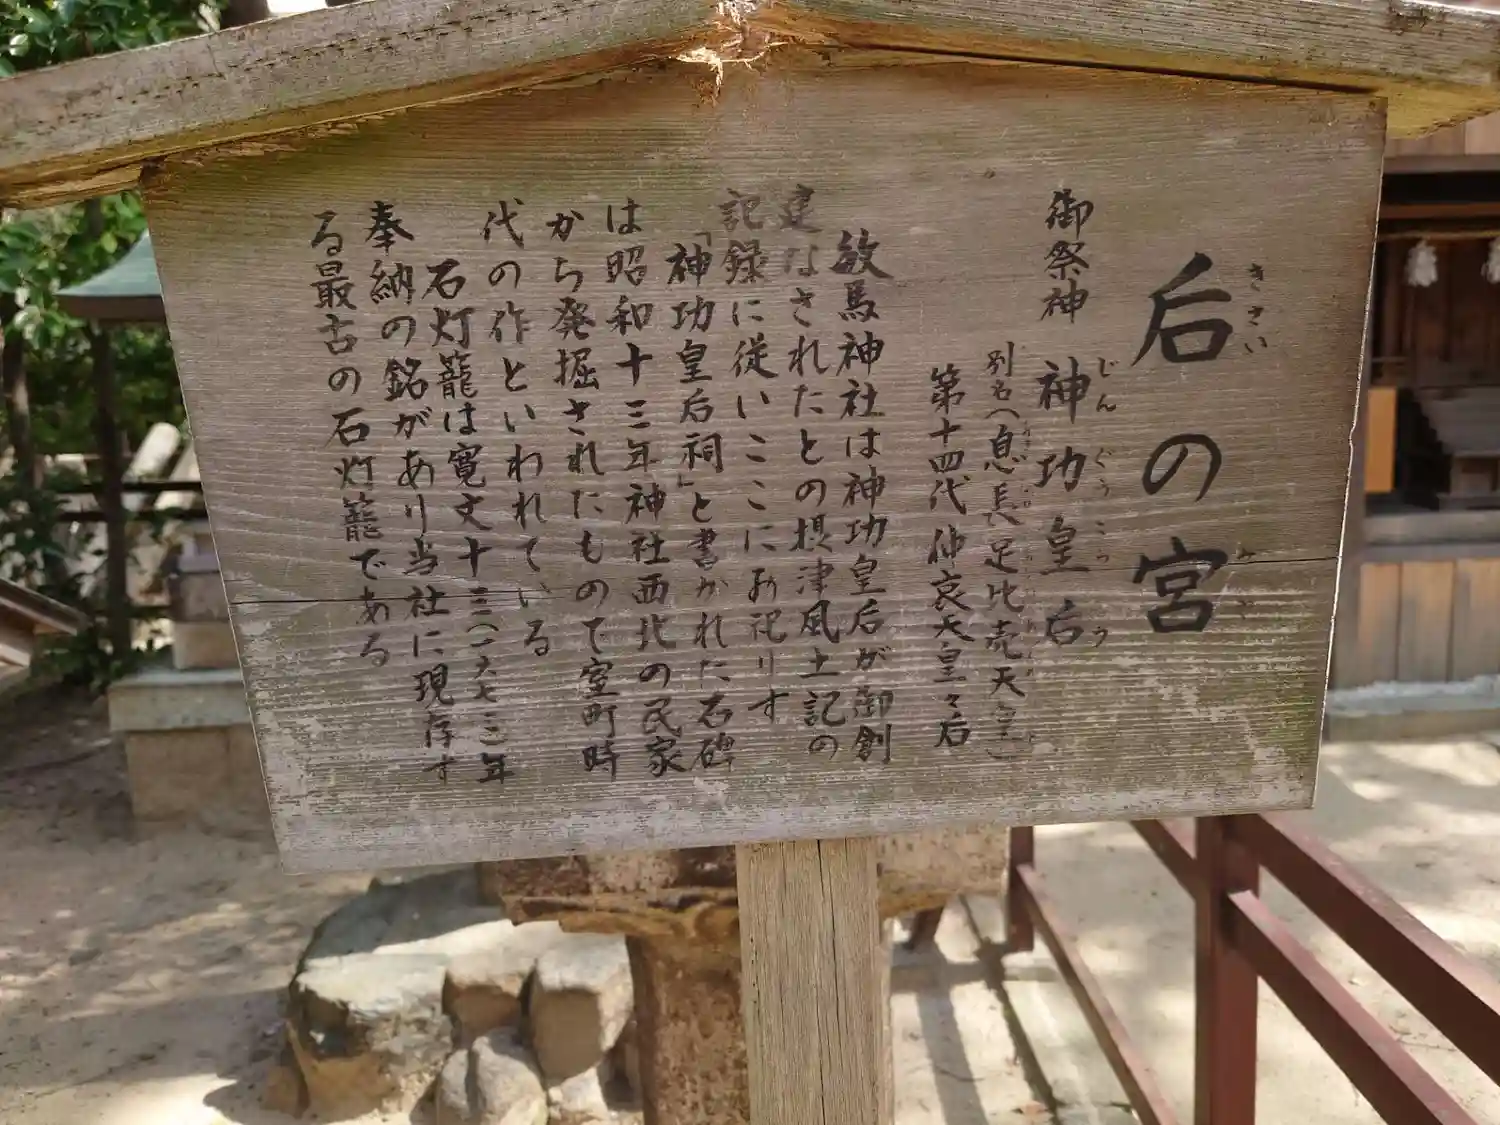 后の宮
きさい
みや
御祭神
神功皇后
じんぐうこうごう
別名（息長足比売天皇）
第十四代仲哀天皇々后
敏馬神社は神功皇后が御創
建なされたとの摂津風土記の
記録に従いここにお祀りす
「神功皇后祠」と書かれた石碑
は昭和十三年神社西北の民家
から発掘されたもので室町時
代の作といわれている
石灯籠は寛文十三（一六七三）年
奉納の銘があり当社に現存す
る最古の石灯籠である